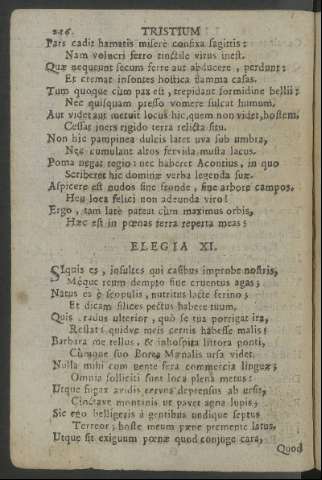 226. TRISTIUM
Pars cadit hamatis miserè confixa sagittis:
Nam volucri ferro tinctile virus inest.
Quæ nequeunt secum ferre aut abducere, perdunt:
Et cremat insontes hostica flamma casas.
Tum quoque cùm pax est, trepidant formidine belli:
Nec quisquam presso vomere sulcat humum.
Aut videt aut metuit locus hic, quem non videt, hostem,
Cessat iners rigido terra relicta situ.
Non hic pampinea dulcis latet uva sub umbra,
Nec cumulant altos fervida musta lacus.
Poma negat regio: nec haberet Acontius, in quo
Scriberet hic dominæ verba legenda suæ.
Aspicere est nudos sine fronde, sine arbore campos,
Heu loca felici non adeunda viro!
Ergo, tam latè pateat cùm maximus orbis,
Hæc est in pœnas terra reperta meas;
ELEGIA XI.
SIquis es, insultes qui casibus improbe nostris,
Mèque reum dempto fine cruentus agas;
Natus es è scopulis, nutritus lacte ferino;
Et dicam silices pectus habere tuum,
Quis gradus ulterior, quò se tua porrigat ira,
Restat? quidve meis cernis habesse malis?
Barbara me tellus, & inhospita littora ponti,
Cùmque suo Borea Mænalis ursa videt.
Nulla mihi cum gente fera commercia linguæ;
Omnia solliciti sunt loca plena metus:
Utque fugax avidis cervus deprensus ab ursis,
Cinctave montanis ut pavet agna lupis;
Sic ego belligeris à gentibus undique septus
Terreor; hoste meum pæne premente latus.
Utque sit exiguum pœnæ quod conjuge cara,
Quod